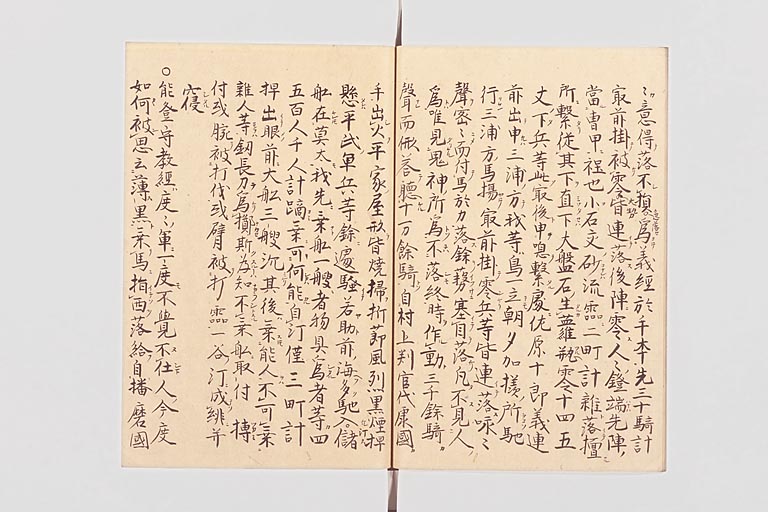 〻意得落不損為義經於手本先三十騎計
冣前掛被零皆連落後陣零人〻鐙端先陣
當冑甲程也小石交砂流霝二町計雜落壇
所繫從其下直下大盤石生蘿甁零十四五
丈下兵等此冣後申唿繫處佐原十郎義連
前出申三浦方我等鳥一立朝夕加樣所馳
行三浦方馬塲冣前掛零兵等皆連落咏〻
聲密〻而付馬於力落餘藐塞目落凡不見人
為唯見鬼神所為不落終時作動三千餘騎
聲而俶荅聽十万餘騎自村上判官代康國
手出火平家屋形皆燒掃折莭風烈黒煙押
懸平氏軍兵等餘遽騷若助前海多馳入儲
舩在莫太我先乗舩一艘者物具為者等四
五百人千人計蹋乗可何能自汀僅三町計
押出眼前大舩三艘沉其後乗能人不可乗
雜人等釼長刀為擲斯為知不乗舩取付摶
付或腕被打伐或臂被打霝一谷汀成緋并
寑
○能登守教經度〻軍一度不覺不仕人今度
如何被思云薄黒乗馬指西落給自播磨國